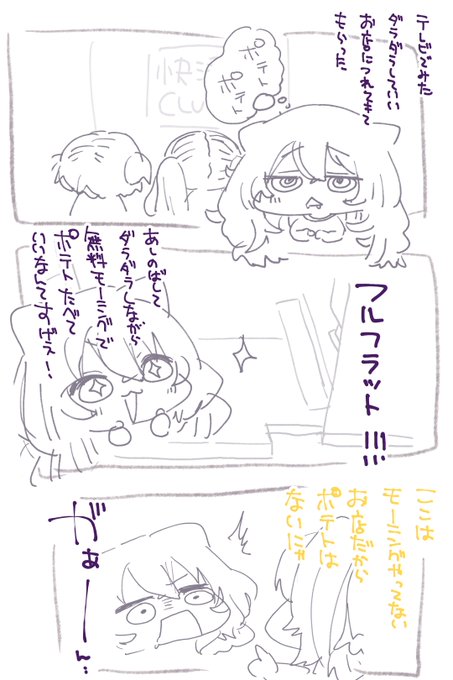 テレビでみた
ダラダラしていい
お店につれてきて
もらった
ポテト
ポテト
快活
CLUB
フルフラット!!!
あしのばして
ダラダラしながら
無料モーニングで
ポテトたべて
いいなんてすげえー!
ここは
モーニングやってない
お店だから
ポテトは
ないにゃ
がぁーーん…